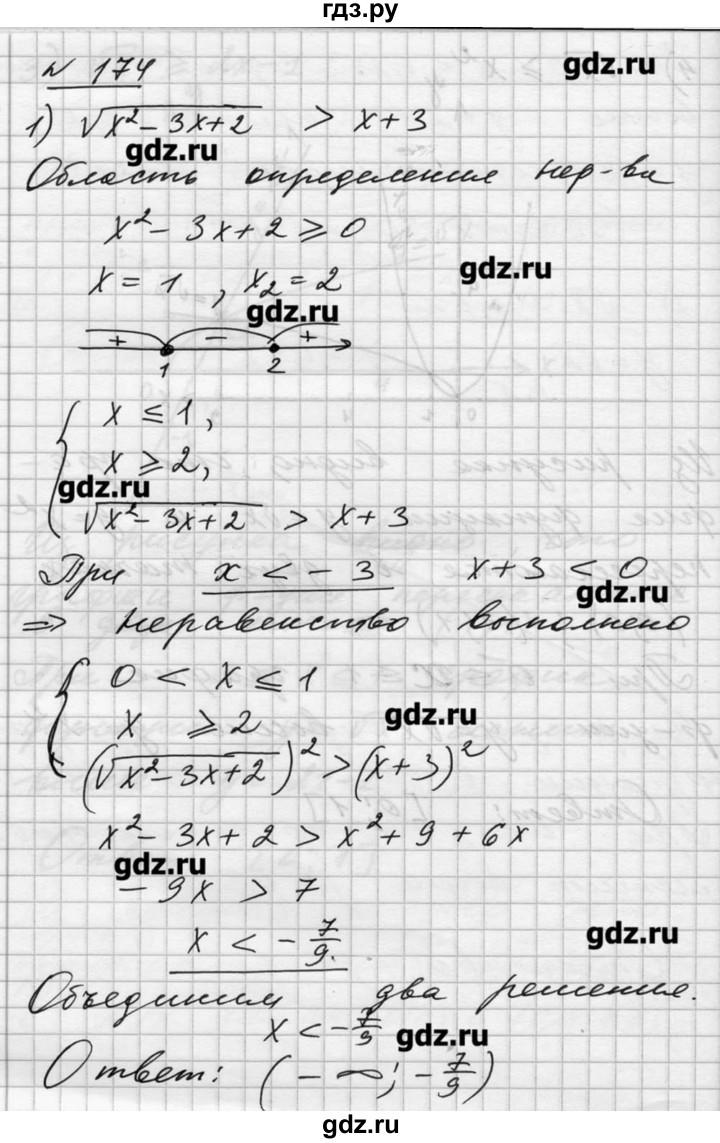 гдз.ру
№ 174
gdz.ru
1) √(x² - 3x + 2) > x + 3
gdz.ru
Область определения нер-ва
x² - 3x + 2 ⩾ 0
gdz.ru
x = 1 , x₂ = 2
gdz.ru
+ - +
1 2
{ x ⩽ 1,
x ⩾ 2,
gdz.ru
√(x² - 3x + 2) > x + 3
При x < - 3 x + 3 < 0
gdz.ru
⇒ неравенство выполнено
{ 0 < x ⩽ 1
x ⩾ 2
gdz.ru
(√(x² - 3x + 2))² > (x + 3)²
x² - 3x + 2 > x² + 9 + 6x
gdz.ru
- 9x > 7
x < - 7/9.
gdz.ru
Объединим два решения.
x < - 7/9
gdz.ru
Ответ: (- ∞; - 7/9)
gdz.ru